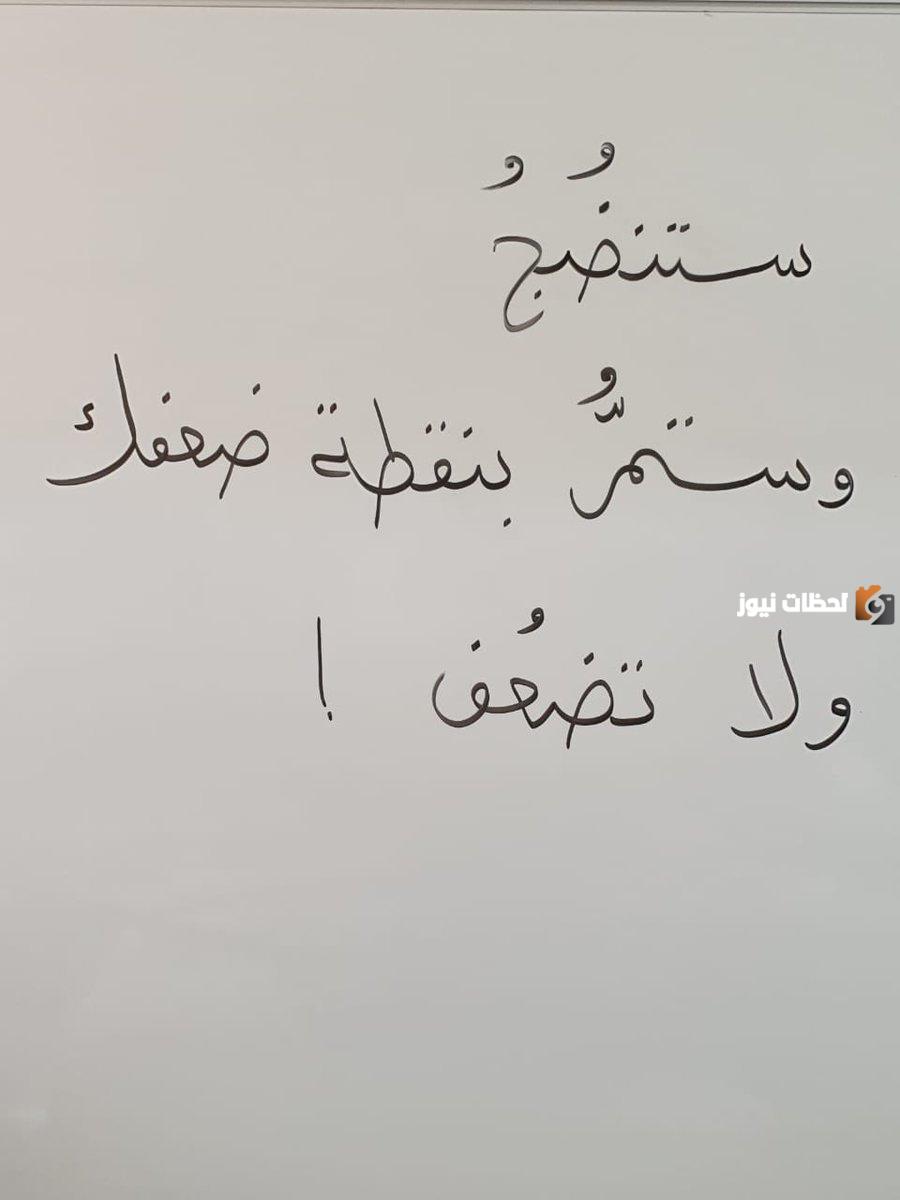 ستنضُجُ
وستمرُّ بنقطة ضعفك
لحظات نيوز
ولا تضعُف !